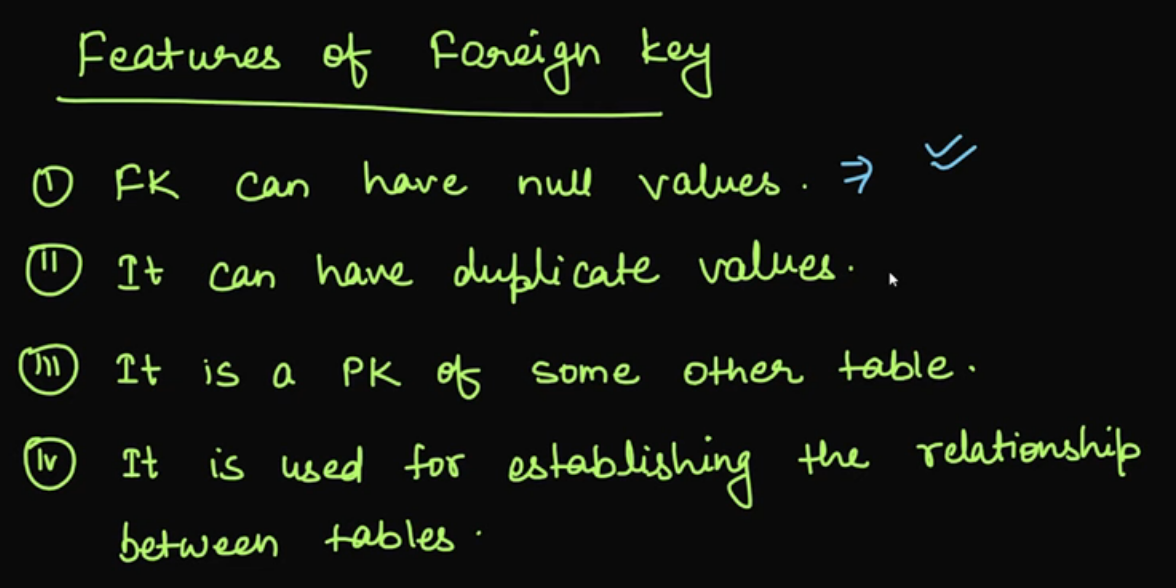 Features of Foreign Key
(i) FK can have null values. ⇒ ✓✓
(ii) It can have duplicate values.
(iii) It is a PK of some other table.
(iv) It is used for establishing the relationship
between tables.